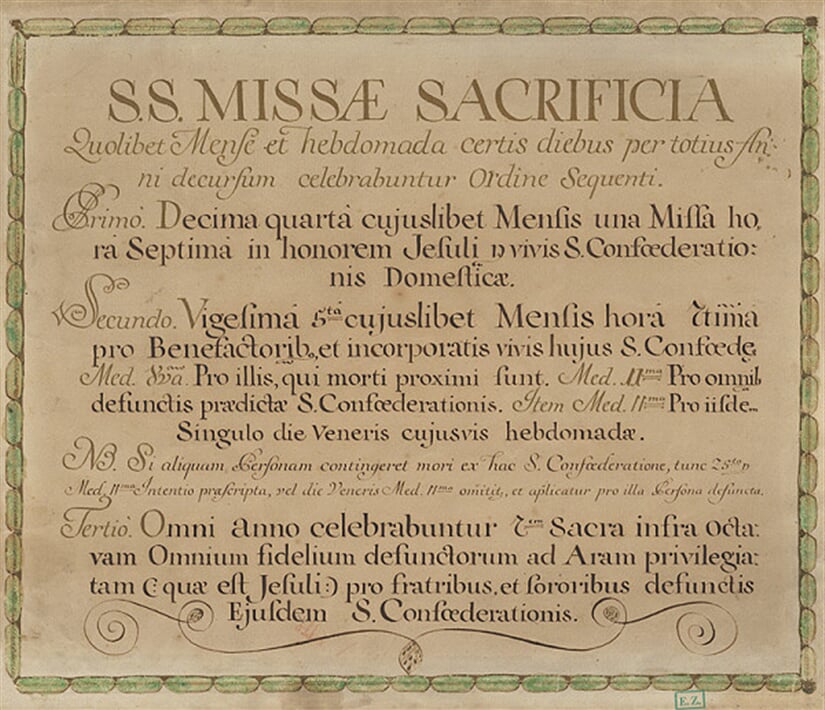 S.S. MISSÆ SACRIFICIA
Quolibet Mense et hebdomada certis diebus per totius An:
ni decursum celebrabuntur Ordine Sequenti.
Primò. Decima quartâ cujuslibet Mensis una Missa ho,
râ Septimâ in honorem Jesuli p vivis S. Confœderatio:
nis Domesticæ.
Secundo. Vigesimâ 5tâ cujuslibet Mensis horâ
pro Benefactorib, et incorporatis vivis hujus S. Confœde,
Med. 8vâ. Pro illis, qui morti proximi sunt. Med. 11ma Pro omnib
defunctis prædictæ S. Confœderationis. Item Med. 11ma Pro iisde
Singulo die Veneris cujusvis hebdomadæ.
NB. Si aliquam Personam contingeret mori ex hac S. Confœderatione, tunc 25ta p
Med. 11ma Intentio præscripta, vel die Veneris Med. 11ma omitit, et aplicatur pro illa Persona defuncta.
Tertiò. Omni anno celebrabuntur Sacra infra octa:
vam Omnium fidelium defunctorum ad Aram privilegia:
tam (: quæ est Jesuli :) pro fratribus, et sororibus defunctis
Ejusdem S. Confœderationis.
E.Z.